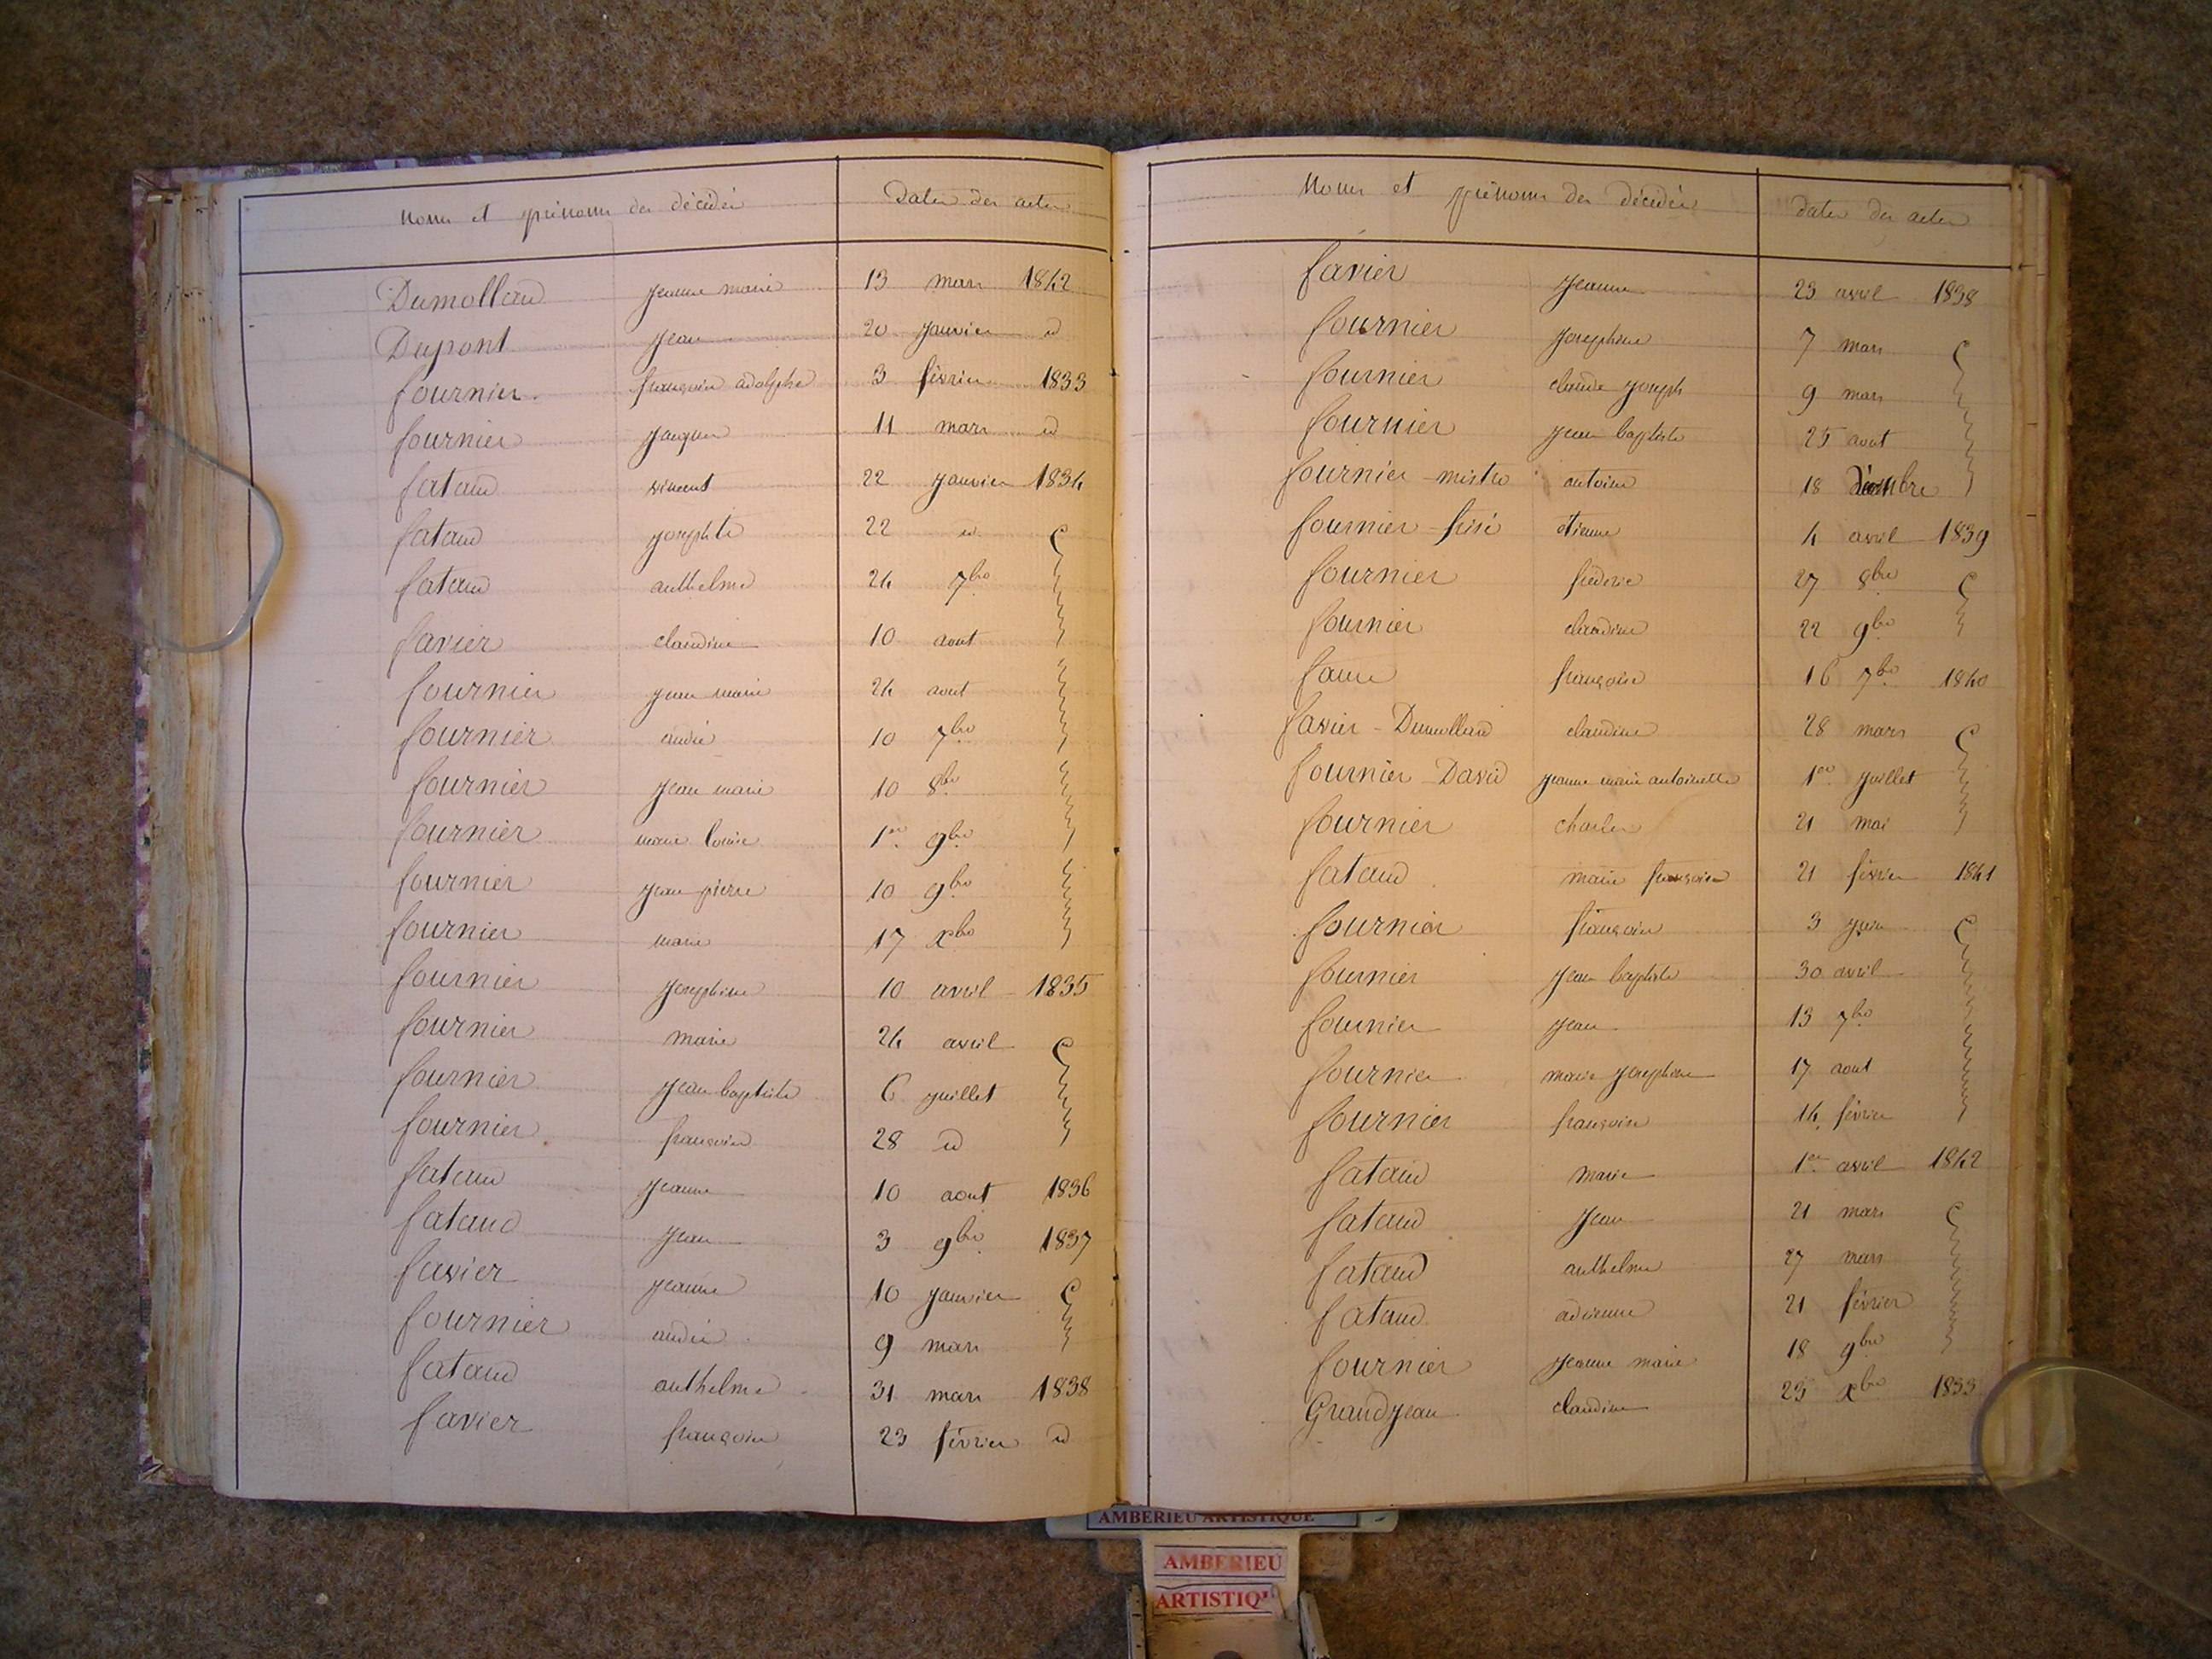 Noms et prénoms des décédés Dates des actes
Dumollard jeanne marie 13 mars 1842
Dupont jean 20 janvier id
fournier françois adolphe 3 février 1833
fournier jacques 11 mars id
fataud vincent 22 janvier 1834
fataud josephte 22 id
fataud anthelme 24 7bre
favier claudine 10 aout
fournier jean marie 24 aout
fournier andré 10 7bre
fournier jean marie 10 8bre
fournier marie louise 1er 9bre
fournier jean pierre 10 9bre
fournier marie 17 xbre
fournier josephine 10 avril 1835
fournier marie 24 avril
fournier jean baptiste 6 juillet
fournier françois 28 id
fataud jeanne 10 aout 1836
fataud jean 3 9bre 1837
favier jeanne 10 janvier
fournier andré 9 mars
fataud anthelme 31 mars 1838
favier françois 23 février id
Noms et prénoms des décédés dates des actes
favier jeanne 23 avril 1838
fournier josephine 7 mars
fournier claude joseph 9 mars
fournier jean baptiste 25 aout
fournier - mistre antoine 18 décembre
fournier - frisé étienne 4 avril 1839
fournier fréderic 27 8bre
fournier claudine 22 9bre
faure françoise 16 7bre 1840
favier - Dumollard claudine 28 mars
fournier David jeanne marie antoinette 1er juillet
fournier charles 21 mai
fataud marie françoise 21 février 1841
fournier françois 3 juin
fournier jean baptiste 30 avril
fournier jean 13 7bre
fournier marie josephine 17 aout
fournier françoise 14 février
fataud marie 1er avril 1842
fataud jean 21 mars
fataud anthelme 27 mars
fataud adrienne 21 février
fournier jeanne marie 18 9bre
Grandjean claudine 23 xbre 1833
AMBERIEU ARTISTIQUE
AMBERIEU
ARTISTIQU